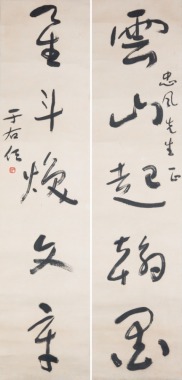 忠風先生正
雲山起翰墨
星斗煥文章
于右任